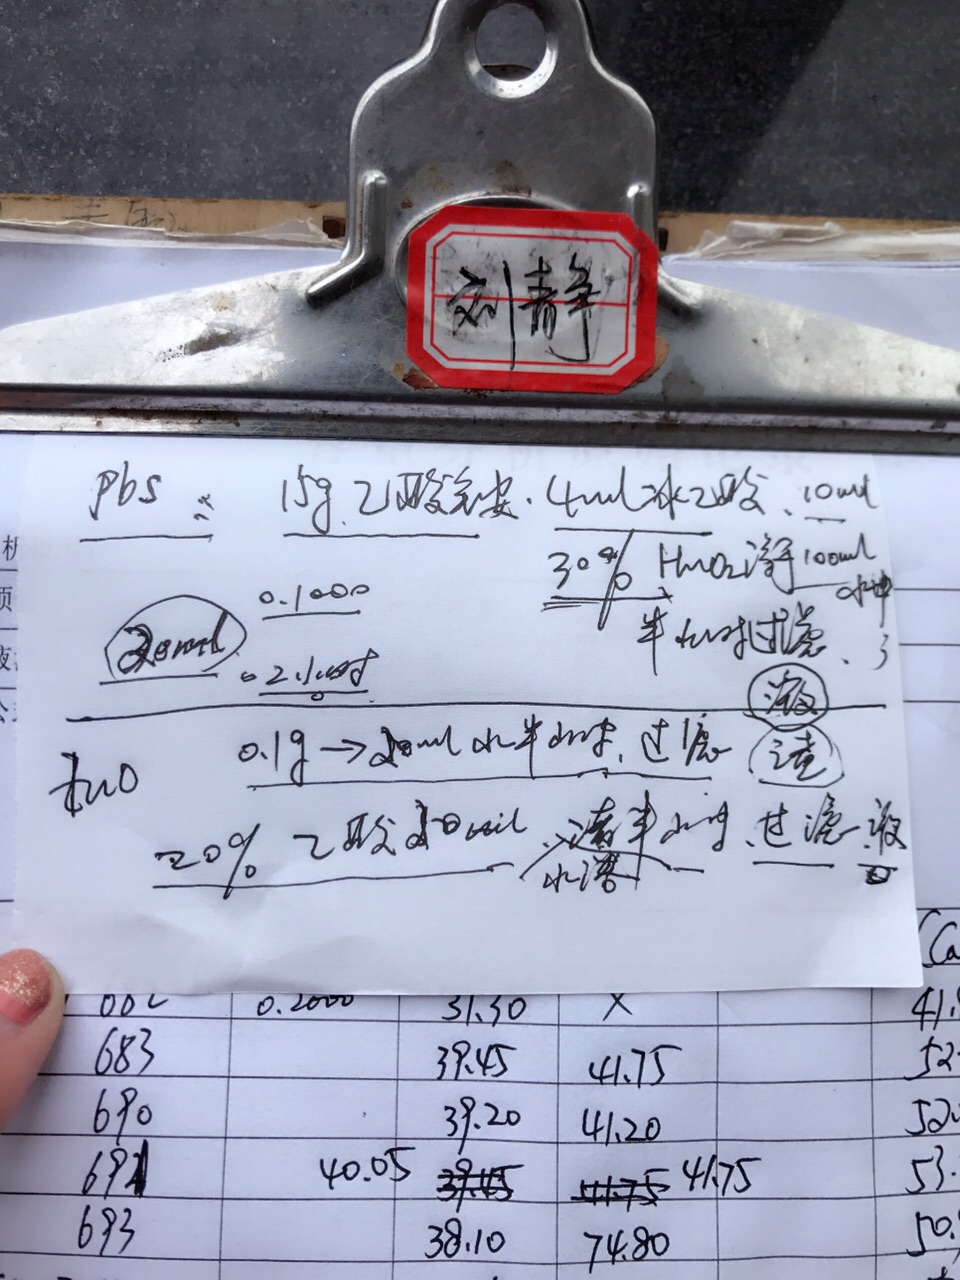 刘静
pbs: 15g 乙酸铵. 4ml冰乙酸、10ml
30% H₂O₂溶于100ml
水中
半小时过滤、
20ml 0.1000
0.2
液
0.1g→20ml 水半小时、过滤 渣
20% 乙酸20ml 渣半小时、过滤 液
水溶
(Ca
002 0.2000 31.30 X 41.
683 39.45 41.75 52
690 39.20 41.20 520
691 40.05 39.45 41.75 41.75 53.
693 38.10 74.80 50.